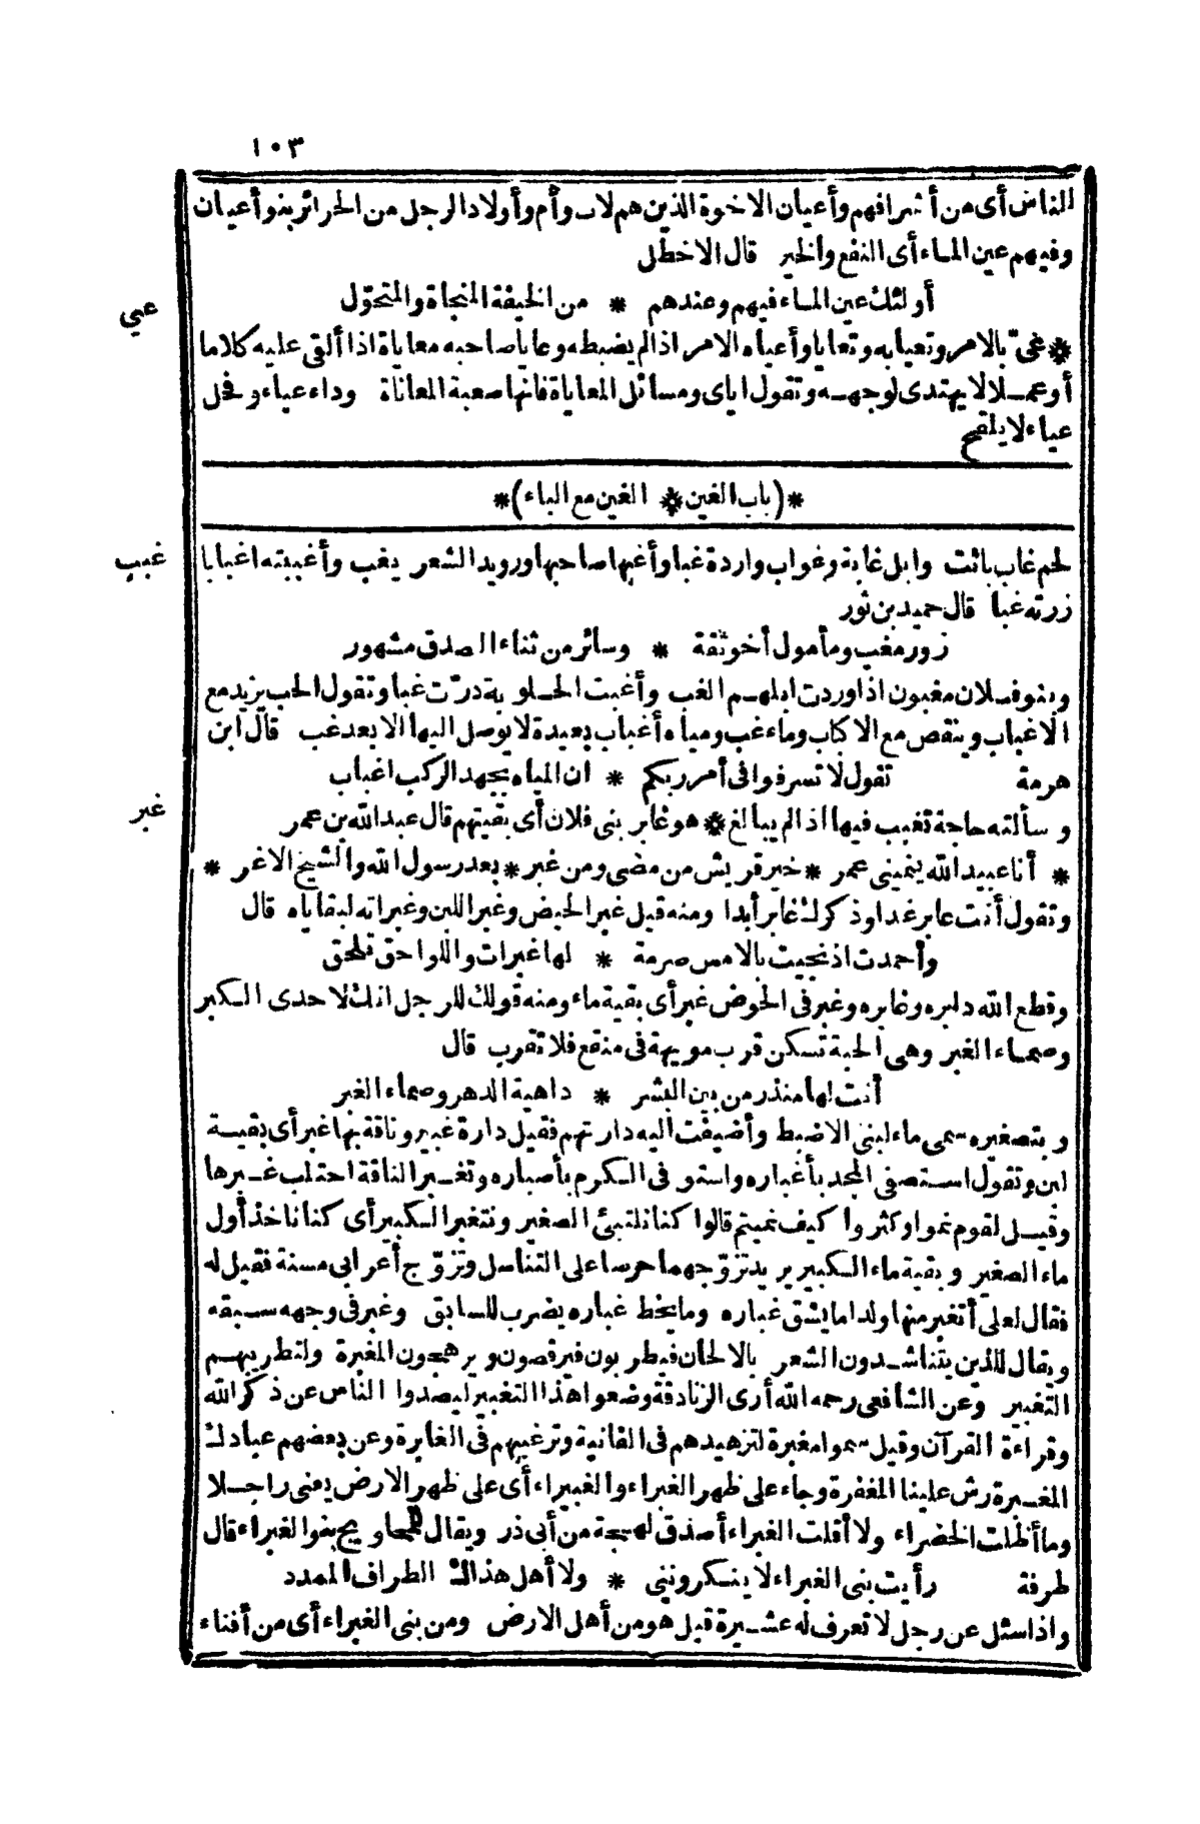 ١٠٣
الناس أى من أشرافهم وأعيان الاخوة الذين هم لاب وأم وأولاد الرجل من الحرائر بنو أعيان
وفيهم عين الماء أى النفع والخير قال الاخطل
أولئك عين الماء فيهم وعندهم * من الخيفة المنجاة والمتحوّل
عيي
* عىّ بالامر وتعيابه وتعايا وأعياه الامر اذا لم يضبطه وعايا صاحبه معاياة اذا ألقى عليه كلاما
أو عملا لا يهتدى لوجهه وتقول اياى ومسائل المعاياة فانها صعبة المعاناة وداء عياء وفحل
عياء لا يلقح
*(باب الغين * الغين مع الباء)*
غبب
لحم غاب بائت وابل غابة وغواب واردة غبا وأغبها صاحبها ورويد الشعر يغب وأغببته اغبابا
زرته غبا قال حميد بن ثور
زور مغب ومأمول أخوثقة * وسائر من ثناء الصدق مشهور
وبنو فلان مغبون اذا وردت ابلهم الغب وأغبت الحلوبة درّت غبا وتقول الحب يزيد مع
الاغباب وينقص مع الاكباب وماء غب ومياه أغباب بعيدة لا يوصل اليها الا بعد غب قال ابن
هرمة تقول لا تسرفوا فى أمر ربكم * ان المياه بجهد الركب اغباب
غبر
وسألته حاجة تغبب فيها اذا لم يبالغ * هو غابر بنى فلان أى بقيتهم قال عبد الله بن عمر
* أنا عبيد الله ينمينى عمر * خير قريش من مضى ومن غبر * بعد رسول الله والشيخ الاغر *
وتقول أنت عابر غدا وذكرك غابر أبدا ومنه قيل غبر الحيض وغبر اللبن وغبراته لبقاياه قال
وأحمدت اذ نجيت بالامس صرمة * لها غبرات واللواحق تلحق
وقطع الله دابره وغابره وغبر فى الحوض غبر أى بقية ماء ومنه قولك للرجل انك لاحدى الكبر
وصماء الغبر وهى الحية تسكن قرب مويهة فى منقع فلا تقرب قال
أنت لها منذر من بين البشر * داهية الدهر وصماء الغبر
وبتصغيره سمى ماء لبنى الاضبط وأضيفت اليه دارتهم فقيل دارة غبير وناقة بها غبر أى بقية
لبن وتقول استصفى المجد بأغباره واستوفى الكرم بأصباره وتغبر الناقة احتلب غبرها
وقيل لقوم نموا وكثروا كيف نميتم قالوا كنا نلتبئ الصغير ونتغبر الكبير أى كنا ناخذ أول
ماء الصغير وبقية ماء الكبير يريد تزوّجهما حرصا على التناسل وتزوّج أعرابى مسنة فقيل له
فقال لعلى أتغبر منها ولدا ما يشق غباره وما يخط غباره يضرب للسابق وغبر فى وجهه سبقه
ويقال للذين يتناشدون الشعر بالالحان فيطربون فيرقصون ويرهجون المغبرة ولتطريبهم
التغبير وعن الشافعى رحمه الله أرى الزنادقة وضعوا هذا التغبير ليصدوا الناس عن ذكر الله
وقراءة القرآن وقيل سموا مغبرة لتزهيدهم فى الفانية وترغيبهم فى الغابرة وعن بعضهم عبادك
المغبرة رش علينا المغفرة وجاء على ظهر الغبراء والغبيراء أى على ظهر الارض يعنى راجلا
وما أظلت الخضراء ولا أقلت الغبراء أصدق لهجة من أبى ذر ويقال للمحاويج بنوا الغبراء قال
طرفة رأيت بنى الغبراء لا ينكروننى * ولا أهل هذاك الطراف الممدد
واذا سئل عن رجل لا تعرف له عشيرة قيل هو من أهل الارض ومن بنى الغبراء أى من أفناء